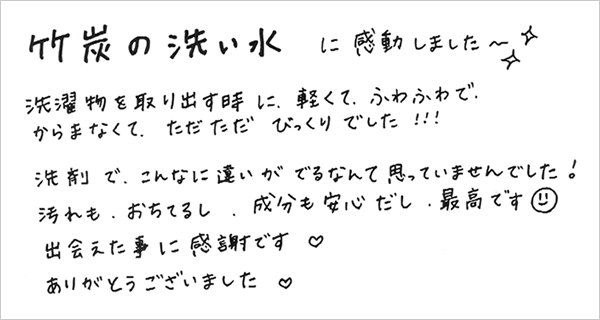 竹炭の洗い水 に感動しました〜✨
洗濯物を取り出す時に、軽くて、ふわふわで、
からまなくて、ただただ びっくりでした!!!
洗剤で、こんなに違いがでるなんて思っていませんでした!
汚れも、おちてるし、成分も安心だし、最高です☺
出会えた事に感謝です ♡
ありがとうございました ♡